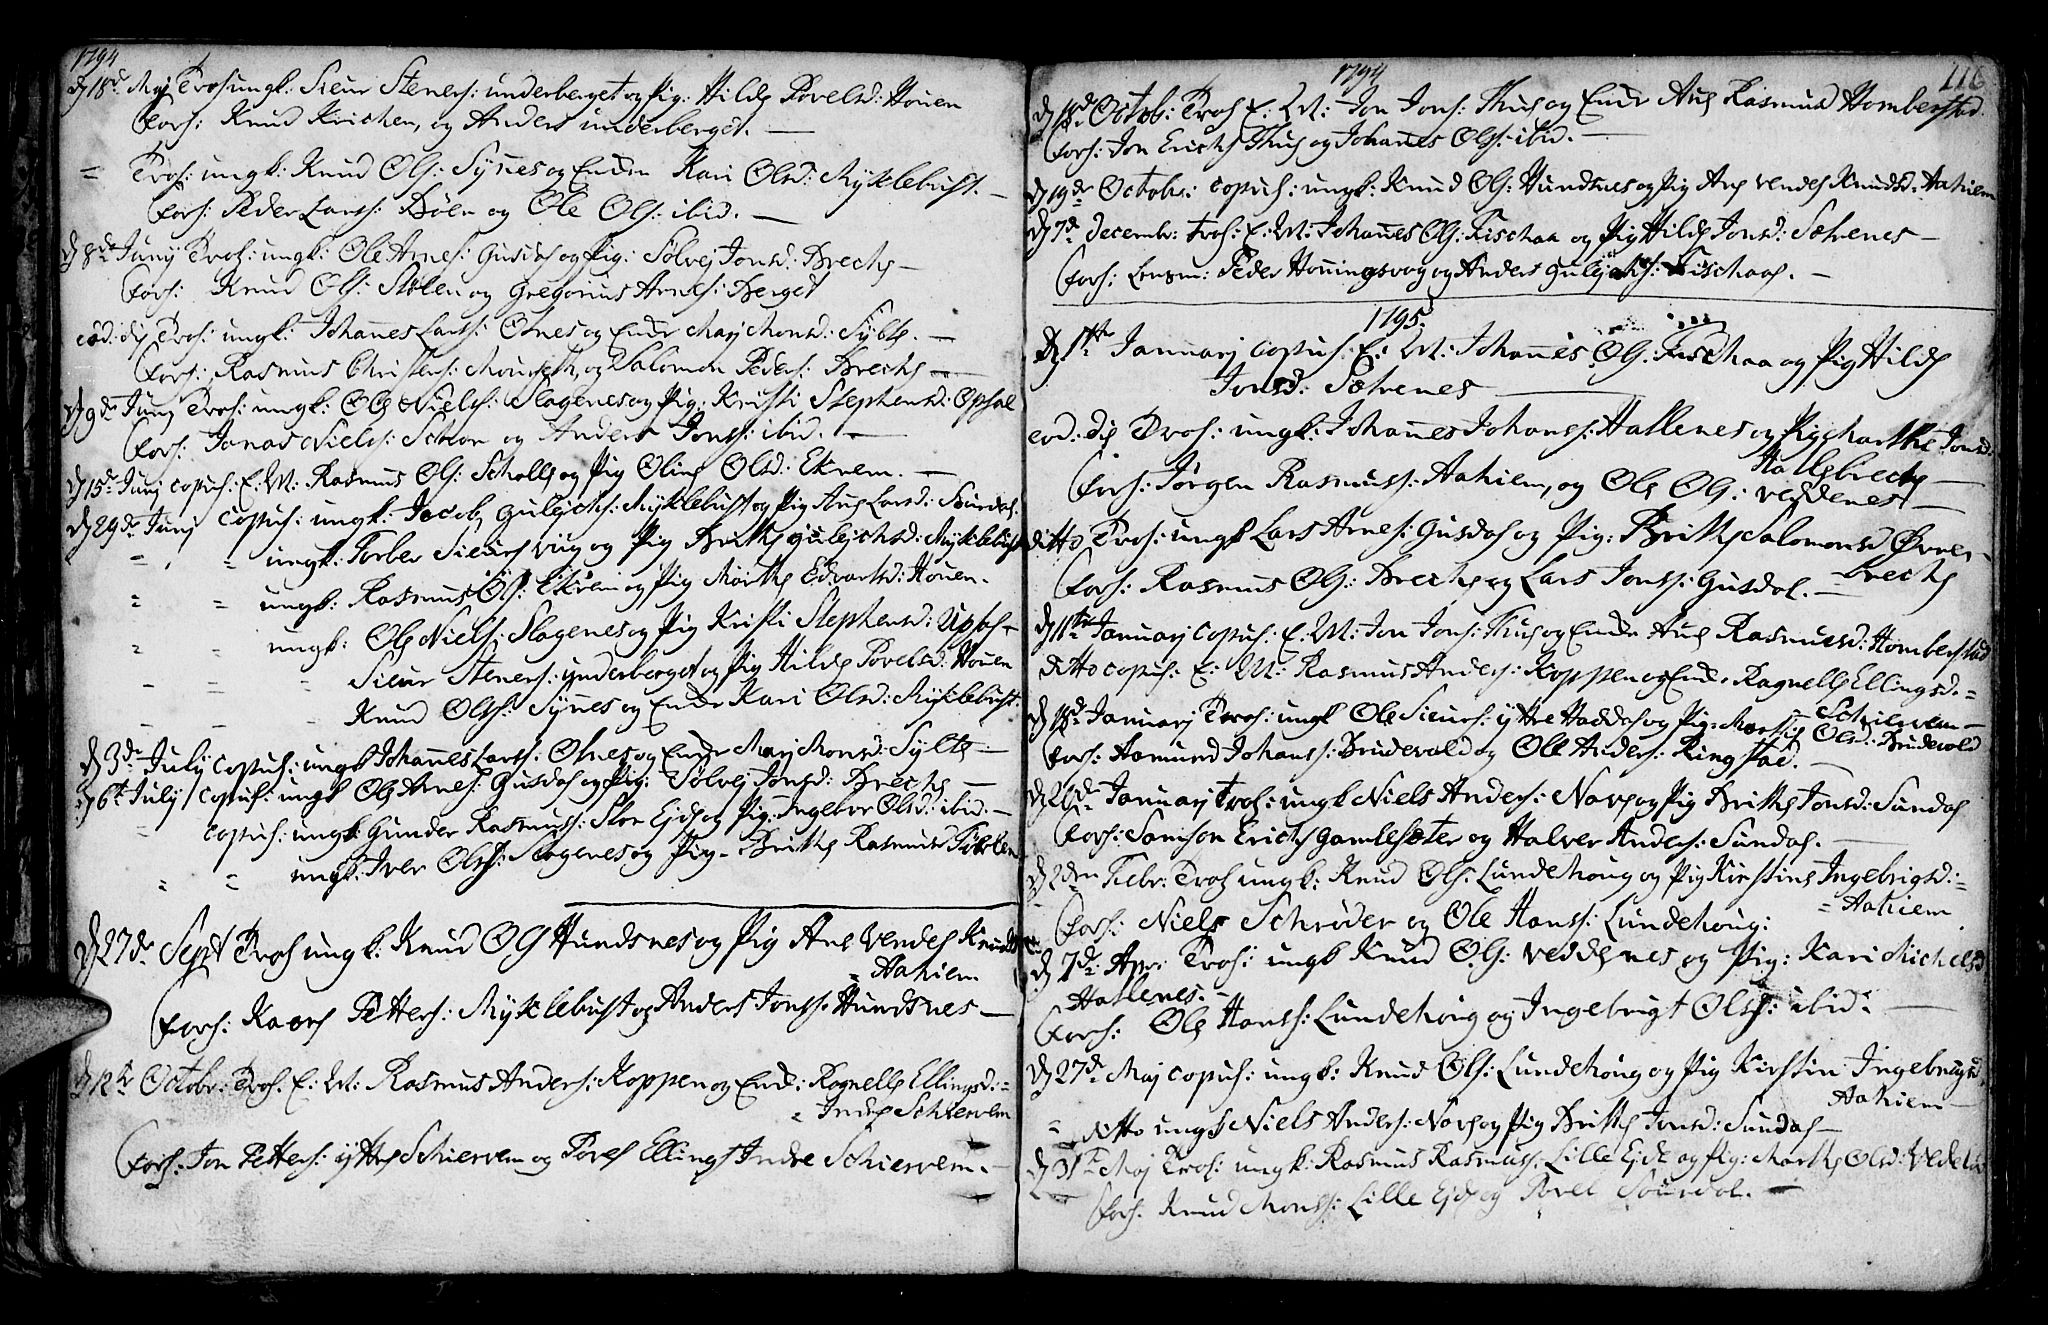 1794
d 18de Maj Trol: ungk: Siur Steners: underberget og Pig: Hilde Povelsd: Houen
Forl: Knud Krichen, og Anders underberget. —
= Trol: ungk: Knud Ols: Synes og Enken Kari Olsd: Myklebust. —
Forl: Peder Lars: Böen og Ole Ols: ibid. —
d 8de Junij Trol: ungk: Ole Arnes: Gusdal og Pig: Sölvej Jonsd: Breche —
Forl: Knud Ols: Stölen og Gregorius Arnes: Berget
eod: die Trol: ungk: Johañes Lars: Otnes og Enke Marj Monsd: Sylte. —
Forl: Rasmus Christens: og Salomon Peders: Breche —
d 9de Junj Trol: ungk: Ole Niels: Slagenes og Pig: Kristi Stephensd: Opsal
Forl: Jonas Niels: og Anders Jons: ibid. —
d 15de Junj copul: E: M: Rasmus Ols: Scholle og Pig Oline Olsd: Ekrem. —
d 29de Junj copul: ungk: Jacob Gulichs: Myklebust og Pig Ane Larsd: Sourdal.
= = ungk: Torber Siurs: viig og Pig Britthe Gulichsd: Myklebust
= = ungk: Rasmus Ols: Ekrem og Pig Marthe Edvartsd: Houen.
= = ungk: Ole Niels: Slagenes og Pig Kristi Stephensd: Upsal —
= = Siur Steners: underberget og Pig Hilde Povelsd: Houen
Knud Ols: Synes og Enke Kari Olsd: Myklebust.
d 3de Julij copul: ungk Johañes Lars: Otnes og Enke Marj Monsd: Sylte —
d 6te Julij copul: ungk Ole Arnes: Gusdal og Pig: Sölvej Jonsd: Breche —
= copul: ungk: Gunder Rasmus: Stor Ejde og Pig: Ingebor Olsd: ibid —
= = ungk: Iver Ols: Slagenes og Pig — Britthe Rasmusd
d 27de Sept Trol ungk: Knud Ols Hundsnes og Pig Ane Vendel Knudsd
= Aahiem
Forl: Kaars Petters: Myklebust og Anders Jons: Hundsnes —
d 12te Octobr: Trol. E: M: Rasmus Anders: Koppen og Enk: Ragnelle Ellingsd: =
= Indre Schiervem
Forl: Jon Petters: ytthre Schiervem og Povel Ellings: Indre Schiervem. —
1794
116
d 18de Octob: Trol E: M: Jon Jons: Thue og Enke Ane Rasmusd Homberstad.
Forl: Jon Erichs Thue og Johañes Ols: ibid. —
d 19de Octobr: copul: ungk: Knud Ols: Hundsnes og Pig Ane Vendel Knudsd: Aahiem
d 7de Decembr: trol: E: M: Johañes Ols: Fischaa og Pig Hilde Jonsd: Sætrenes —
Forl: Lensm: Peder Honningsvog og Anders Gulichs: Fischaae. —
1795.
d 1te Januarj copul: E: M: Johañes Ols: Fischaa og Pig Hilde
Jonsd: Sætrenes —
eod: die Trol: ungk: Johañes Johans: Hatlenes og Pig Marthe Jonsd:
Hatlebrech —
Forl: Jörgen Rasmuss: Aahiem, og Ole Ols: veddenes —
ditto Trol: ungk Lars Arnes: Gusdal og Pig: Britthe Salomonsd Övre-
breche
Forl: Rasmus Ols: Breche og Lars Jons: Gusdal. —
d 11te Januarj copul: E: M: Jon Jons: Thue og Enke Ane Rasmusd: Homberstad
ditto copul: E: M: Rasmus Anders: Koppen og Enk: Ragnelle Ellingsd: =
= Schiervem —
d 18de Januarj Trol: ungk Ole Siurs: ytthre Haddal og Pig: Marthe Olsd: Brudevold
Forl: Aamund Johans: Brudevold og Ole Anders: Ringstad. —
d Januarj Trol: ungk Niels Anders: Nave og Pig Britthe Jonsd: Sundal
Forl: Samson Erichs Gamlesæter og Halver Anders: Sundal. —
d 2den Febr: Trol ungk: Knud Ols: Lundehoug og Pig Kirstine Ingebrigsd: =
= Aahiem
Forl: Niels Schröder og Ole Hans: Lundehoug:
d 7de: Apr: Trol: ungk Knud Ols: veddenes og Pig: Kari Michelsd
Hatlenes. —
Forl: Ole Hans: Lundehoug og Ingebrigt Ols: ibid: —
d 27de Maj copul: ungk: Knud Ols: Lundehoug og Pig Kirstin Ingebrigsd.
Aahiem —
= ditto ungk Niels Anders: Nave og Pig Britthe Jonsd: Sundal —
d 31te Maj Trol: ungk: Rasmus Rasmus: Lille Ejde og Pig: Marthe Olsd:
Forl: Knud Mons: Lille Ejde og Povel Sourdal. —